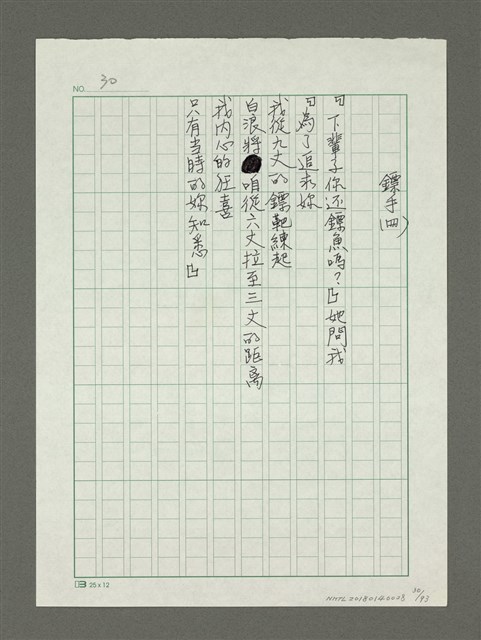 NO. 30
鏢手(四)
「下輩子你还鏢魚嗎？」她問我
「為了追求妳
我從九丈的鏢靶練起
白浪將咱從六丈拉至三丈的距离
我内心的狂喜
只有当時的妳知悉」
25 x 12
NMTL20180142008 30/93